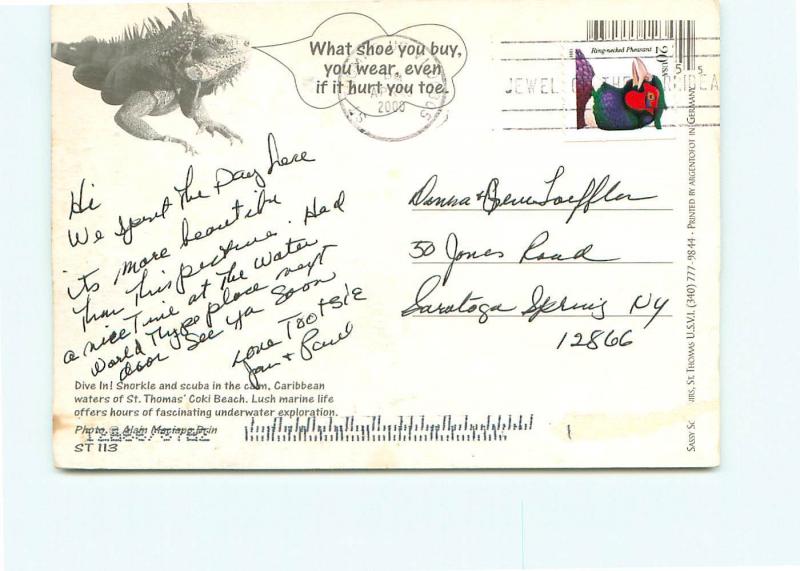 What shoe you buy,
you wear, even
if it hurt you toe.
2000
JEWEL OF THE
Ring-necked Pheasant
20 USA
Hi
We spent The Day here
its more beautiful
than This picture. Had
a nice Time at The Water
World Type place next
door See Ya Soon
Love Tootsie
Jan & Paul
Donna & Gene Loeffler
50 Jones Road
Saratoga Springs NY
12866
Dive In! Snorkle and scuba in the calm, Caribbean
waters of St. Thomas' Coki Beach. Lush marine life
offers hours of fascinating underwater exploration.
Photo © Alain
ST 113
ST. THOMAS U.S.V.I. (340) 777-9844 - PRINTED BY ARGENTOFOT IN GERMANY